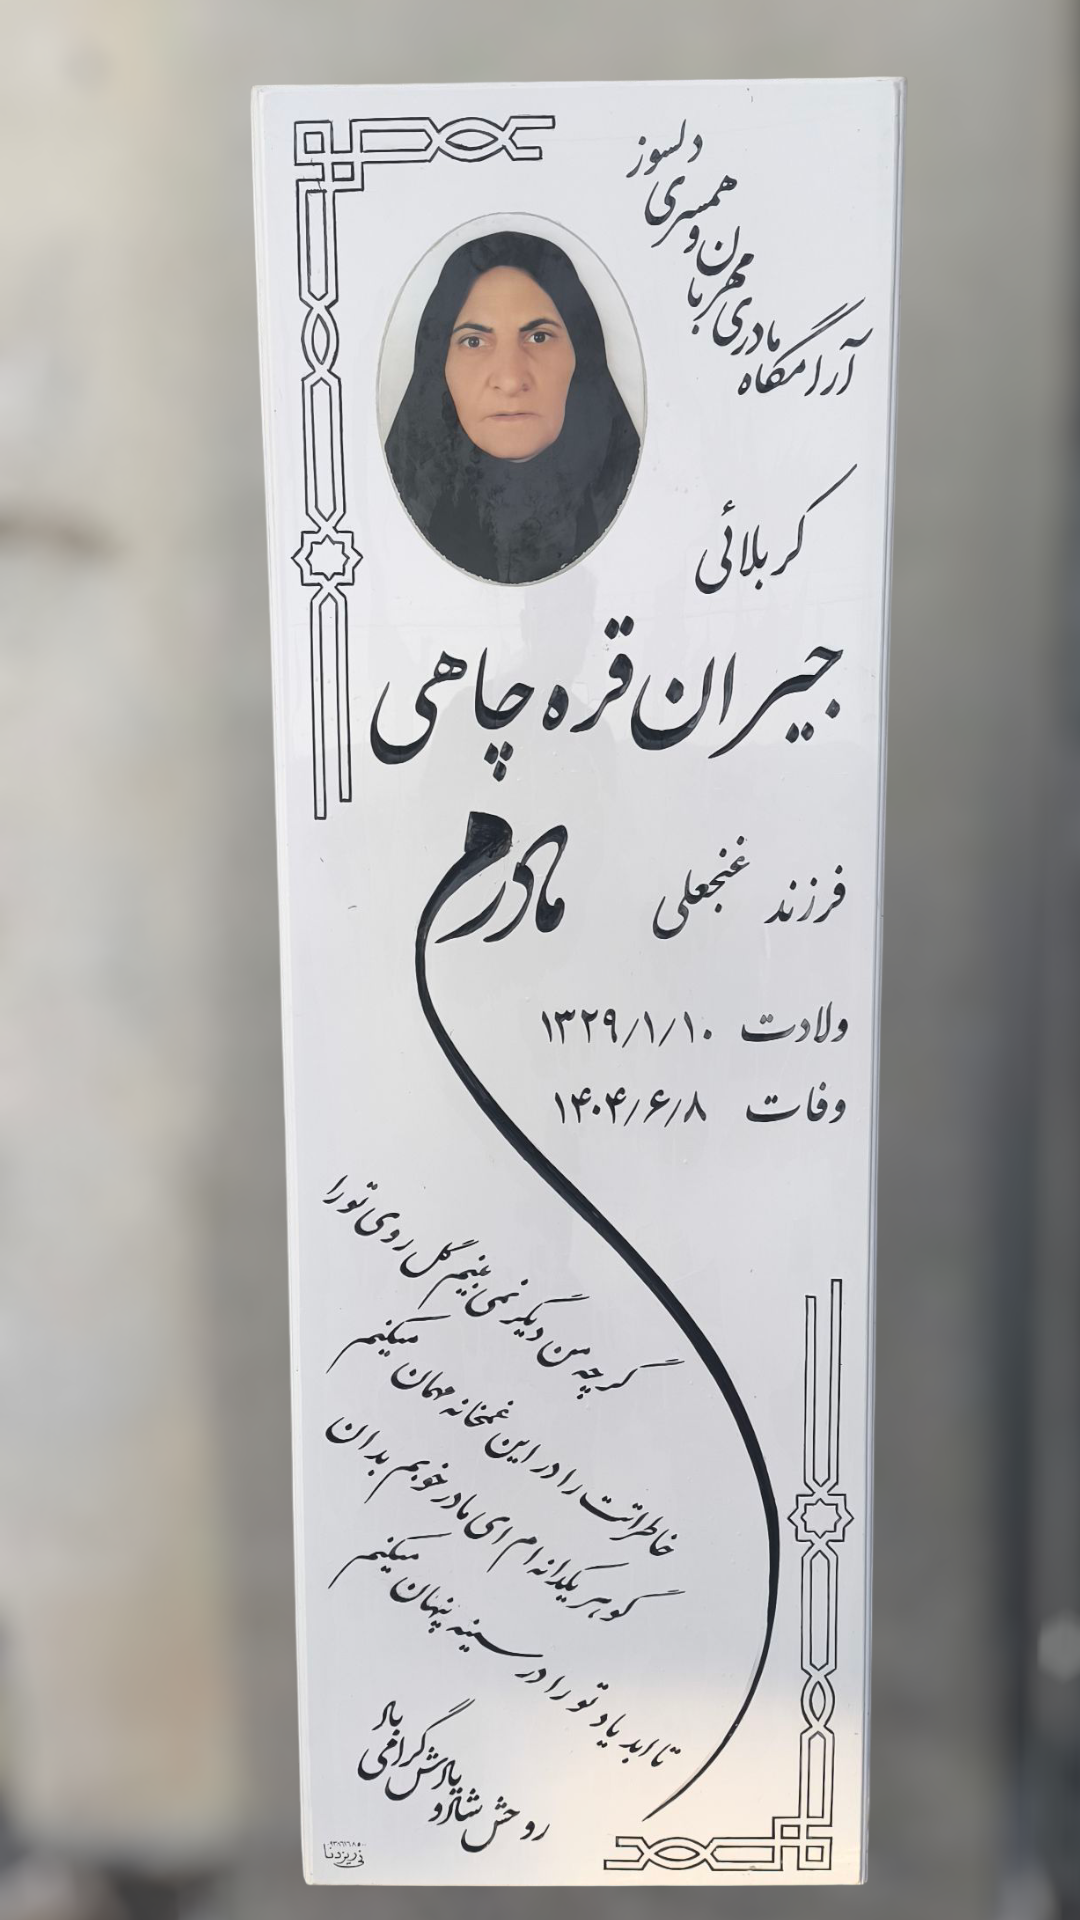 آرامگاه مادری مهربان و همسری دلسوز
کربلائی
جیران قره چاهی
فرزند غنجعلی
مادرم
ولادت ۱۳۲۹/۱/۱۰
وفات ۱۴۰۴/۶/۸
گرچه من دیگر نمی بینم گل روی تو را
خاطراتت را در این غمخانه مهمان میکنم
گوهر یکدانه ام ای مادر خوبم بدان
تا ابد یاد تو را در سینه پنهان میکنم
روحش شاد و یادش گرامی باد